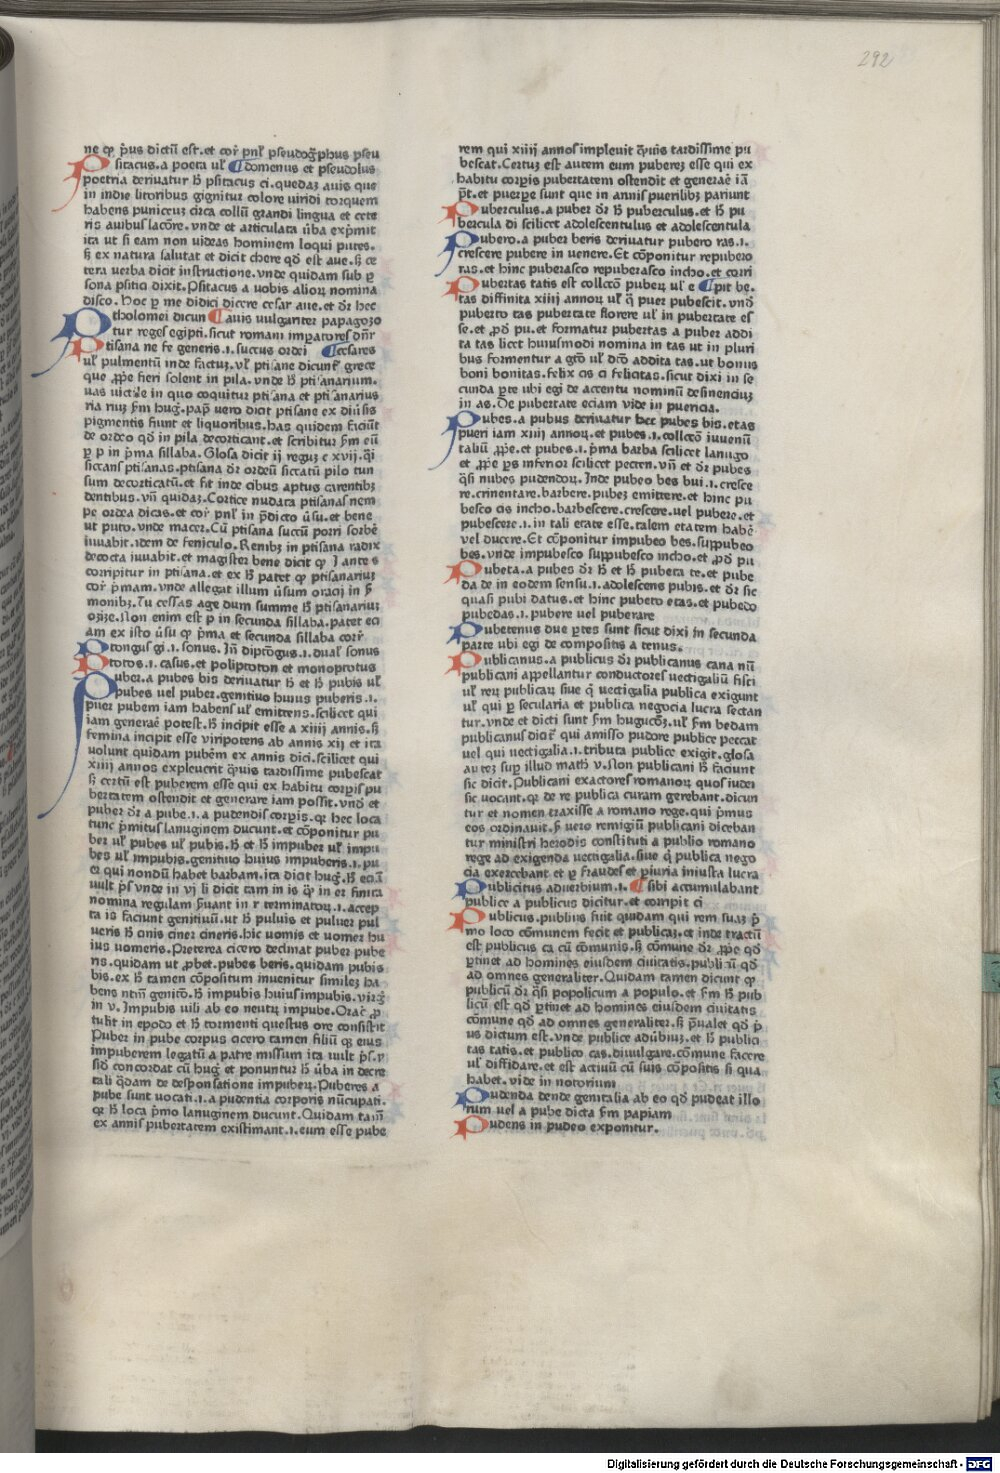 292
ne ꝙ p̄us dictū est. et cor̄ pnl̄ pseudogͣphus pseu
Psitacus. a poeta ul̄ ¶domenus et pseudolus
poetria deriuatur hͦ psitacus ci. quedaꝫ auis que
in indie litoribus gignitur colore uiridi torquem
habens puniceuꝫ circa collū grandi lingua et cete
ris auibus lacōre. vnde et articulata ūba exp̄mit
ita ut si eam non uideas hominem loqui putes.
sꝫ ex natura salutat et dicit chere qd̄ est aue. sꝫ ce
tera uerba dicit instructione. vnde quidam sub ꝑ
sona psitici dixit. Psitacus a uobis alioꝝ nomina
disco. Hoc ꝑ me didici dicere cesar aue. et dr̄ hec
Ptholomei dicun ¶auis uulgariter papagozo
tur reges egipti. sicut romani imꝑatores dn̄r
Ptisana ne fe generis .i. succus ordei ¶cesares
ul̄ pulmentū inde factuꝫ. vl̄ ptisane dicunt̄ grece
que ꝓpe fieri solent in pila. vnde hͦ ptisanarium.
uas uictile in quo coquitur ptisana et ptisanarius
ria riuꝫ fm huḡ. pap̄ uero dicit ptisane ex diūsis
pigmentis fiunt et liquoribus. has quidem faciūt
de ordeo qd̄ in pila decorticant. et scribitur fm eū
ꝑ p in p̄ma sillaba. Glosa dicit ij reguꝫ c xvij. q̄si
siccans ptisanas. ptisana dr̄ ordeū siccatū pilo tun
sum decorticatū. et fit inde cibus aptus carentibꝫ
dentibus. vn̄ quidaꝫ. Cortice nudata ptisanas nem
pe ordea dicas. et cor̄ pnl̄ in p̄dicto ūsu. et bene
ut puto. vnde macer. Cū ptisana succū porri sorbē
iuuabit. idem de feniculo. Renibꝫ in ptisana radix
decocta iuuabit. et magister bene dicit ꝙ I ante s
corripitur in ptisana. et ex hͦ patet ꝙ ptisanariuꝫ
cor̄ p̄mam. vnde allegat illum ūsum oracij in p̄
monibꝫ. Tu cessas age dum summe hͦ ptisanariuꝫ
oziꝫe. Non enim est p in secunda sillaba. patet eci
am ex isto ūsu ꝙ p̄ma et secunda sillaba cor̄
Ptongus gi .i. sonus. In̄ diptōgus .i. dual̄ sonus
Ptotos .i. casus. et poliptoton et monoptotus
Puber. a pubes bis deriuatur hͦ et hͦ pubis ul̄
pubes uel puber. genitiuo huius puberis .i.
puer pubem iam habens ul̄ emittens. scilicet qui
iam generaē potest. hͦ incipit esse a xiiij annis. sꝫ
femina incipit esse viripotens ab annis xij et ita
uolunt quidam pubēm ex annis dici. scilicet qui
xiiij annos expleuerit q̄uis tardissime pubescat
sꝫ certū est puberem esse qui ex habitu corꝑis pu
bertatem ostendit et generare iam possit. vnd̄ et
puber dr̄ a pube .i. a pudendis corꝑis. qꝛ hec loca
tunc p̄mitus lanuginem ducunt. et cōponitur pu
ber ul̄ pubes ul̄ pubis. hͦ et hͦ impuber ul̄ impu
bes ul̄ impubis. genitiuo huius impuberis .i. pu
er qui nondū habet barbam. ita dicit huḡ. hͦ eciā
uult p̄s vnde in vj li dicit tam in is q̄ in er finita
nomina regulam p̄uant in r terminatoꝝ .i. accep
ta is faciunt genitiuū. ut hͦ puluis et puluer pul
ueris hͦ cinis ciner cineris. hic uomis et uomer hu
ius uomeris. Preterea cicero declinat puber pube
ris. quidam ut ꝓbet. pubes beris. quidam pubis
bis. ex hͦ tamen cōpositum inuenitur simileꝫ ha
bens ntm̄ genitō. hͦ impubis huius impubis. virḡ
in v. Impubis uili ab eo neutrꝫ impube. Orac̄ ꝓ
tulit in epodo et hͦ tormenti questus ore consistit
Puber in pube corpus cicero tamen filiū qꝫ eius
impuberem legatū a patre missum ita uult p̄s. v
sꝫ concordat cū huḡ et ponuntur hͦ ūba in decre
tali q̄dam de desponsatione impubeꝝ. Puberes a
pube sunt uocati .i. a pudentia corporis nūcupati.
qꝛ hͦ loca p̄mo lanuginem ducunt. Quidam tam̄
ex annis pubertatem existimant .i. eum esse pube
rem qui xiiij annos impleuit q̄uis tardissime pu
bescat. Certuꝫ est autem eum pubereꝫ esse qui ex
habitu corꝑis pubertatem ostendit et generaē iā
pt̄. et puerꝑe sunt que in annis puerilibꝫ pariunt
Puberculus. a puber dr̄ hͦ puberculus. et hͦ pu
bercula di scilicet adolescentulus et adolescentula
Pubero. a puber beris deriuatur pubero ras .i.
crescere pubere in uenere. Et cōponitur repubero
ras. et hinc puberasco repuberasco incho. et corri
Pubertas tatis est collectō pubeꝝ ul̄ e ¶pit be.
tas diffinita xiiij annoꝝ ul̄ q̄ puer pubescit. vnd̄
puberto tas pubertate florere ul̄ in pubertate es
se. et ꝓd̄ pu. et formatur pubertas a puber addi
ta tas licet huiusmodi nomina in tas ut in pluri
bus formentur a gtō ul̄ dtō addita tas. ut bonus
boni bonitas. felix cis ci felicitas. sicut dixi in se
cunda ꝑte ubi egi de accentu nominū desinenciuꝫ
in as. De pubertate eciam vide in puericia.
Pubes. a pubus deriuatur hec pubes bis. etas
pueri iam xiiij annoꝝ. et pubes .i. collectō iuuenū
taliū ꝓpe. et pubes .i. p̄ma barba scilicet lanugo
et ꝓpe ꝑs inferior scilicet pecten. vn̄ et dr̄ pubes
q̄si nubes pudendoꝝ. Inde pubeo bes bui .i. cresce
re. crinentare. barbere. pubeꝫ emittere. et hinc pu
besco cis incho. barbescere. crescere. uel pubere. et
pubescere .i. in tali etate esse. talem etatem habē
vel ducere. Et cōponitur impubeo bes. suppubeo
bes. vnde impubesco suppubesco incho. et ꝓd̄ pu
Pubeta. a pubes dr̄ hͦ et hͦ pubeta te. et pube
da de in eodem sensu .i. adolescens pubis. et dr̄ sic
quasi pubi datus. et hinc pubeto etas. et pubedo
pubedas .i. pubere uel puberare
Pubetenus due ꝑtes sunt sicut dixi in secunda
parte ubi egi de compositis a tenus.
Publicanus. a publicus dr̄ publicanus cana nū
publicani appellantur conductores uectigaliū fisci
ul̄ reꝝ publicaꝝ siue q̄ uectigalia publica exigunt
ul̄ qui ꝑ secularia et publica negocia lucra sectan
tur. vnde et dicti sunt fm hugucōꝫ. ul̄ fm bedam
publicanus dicit̄ qui amisso pudore publice peccat
uel qui uectigalia .i. tributa publice exigit. glosa
auteꝫ suꝑ illud math̄ v. Non publicani hͦ faciunt
sic dicit. Publicani exactores romanoꝝ quos iudei
sic uocant. qꝛ de re publica curam gerebant. dicun
tur et nomen traxisse a romano rege. qui p̄mus
eos ordinauit. sꝫ uero remigiū publicani diceban
tur ministri herodis constituti a publio romano
rege ad exigenda uectigalia. siue q̄ publica nego
cia exercebant et ꝑ fraudes et ꝑiuria iniusta lucra
Publicitus aduerbium .i. ¶sibi accumulabant
publice a publicus dicitur. et corripit ci
Publicus. publius fuit quidam qui rem suaꝫ p̄
mo loco cōmunem fecit et publicaꝫ. et inde tractū
est publicus ca cū cōmunis. sꝫ cōmune dr̄ ꝓpe qd̄
ꝑtinet ad homines eiusdem ciuitatis. publicū qd̄
ad omnes generaliter. Quidam tamen dicunt ꝙ
publicū dr̄ q̄si popolicum a populo. et fm hͦ pub
licū est qd̄ ꝑtinet ad homines eiusdem ciuitatis
cōmune qd̄ ad omnes generaliter. sꝫ p̄ualet qd̄ p̄
us dictum est. vnde publice adūbiuꝫ. et hͦ publici
tas tatis. et publico cas. diuulgare. cōmune facere
ul̄ diffidare. et est actiuū cū suis cōpositis si qua
habet. vide in notorium
Pudenda dende genitalia ab eo qd̄ pudeat illo
rum uel a pube dicta fm papiam
Pudens in pudeo exponitur.
Digitalisierung gefördert durch die Deutsche Forschungsgemeinschaft - DFG